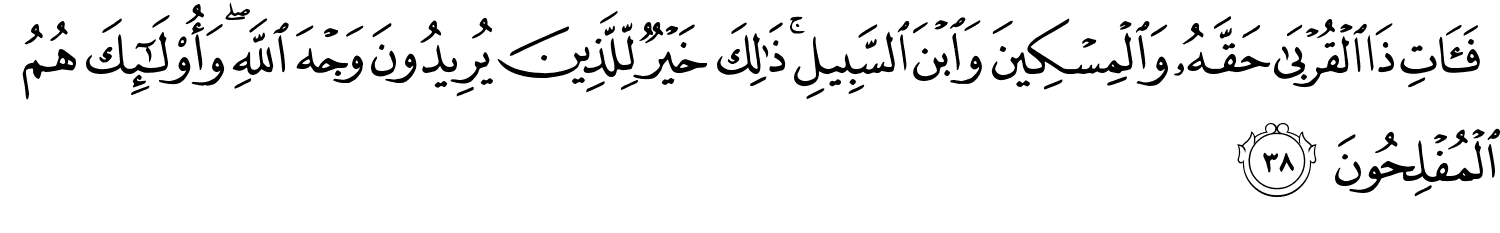 فَـَٔاتِ ذَا ٱلْقُرْبَىٰ حَقَّهُۥ وَٱلْمِسْكِينَ وَٱبْنَ ٱلسَّبِيلِ ۚ ذَٰلِكَ خَيْرٌ لِّلَّذِينَ يُرِيدُونَ وَجْهَ ٱللَّهِ ۖ وَأُو۟لَـٰٓئِكَ هُمُ
ٱلْمُفْلِحُونَ ٣٨